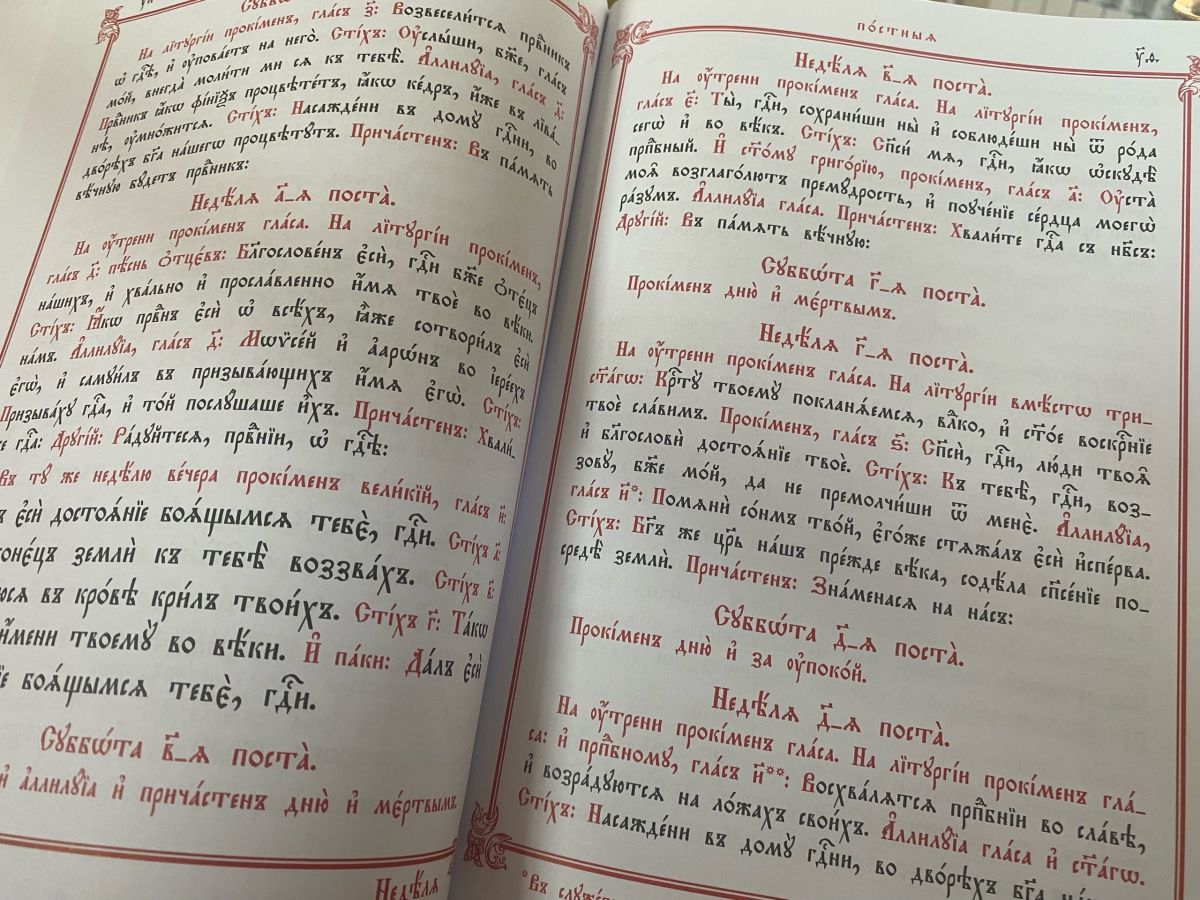 На лїтꙋргі́и прокі́менъ, гла́съ з҃: Возвесели́тся прⷣвникъ
ѡ҆ гдⷭ҇ѣ, и҆ ᲂу҆пова́етъ на него̀. Сті́хъ: Оу҆слы́ши, бж҃е, гла́съ
мо́й, внегда̀ моли́ти ми сѧ къ тебѣ̀. А҆ллилꙋ́їа, гла́съ д҃:
Прⷣвникъ ꙗ҆́кѡ фі́нїѯъ процвѣте́тъ, ꙗ҆́кѡ ке́дръ, и҆́же въ лїва́-
нѣ, ᲂу҆мно́житсѧ. Сті́хъ: Насажде́ни въ домꙋ̀ гдⷭ҇ни, во
дво́рѣхъ бг҃а на́шегѡ процвѣтꙋ́тъ. Прича́стенъ: Въ па́мѧть
вѣ́чнꙋю бꙋ́детъ прⷣвникъ:
Недѣ́лѧ а҃_ѧ поста̀.
На ᲂу҆́трени прокі́менъ гла́са. На лїтꙋргі́и прокі́менъ,
гла́съ д҃: пѣ́снь ѻ҆тцє́въ: Блгⷭ҇ове́нъ є҆сѝ, гдⷭ҇и бж҃е ѻ҆тє́цъ
на́шихъ, и҆ хва́льно и҆ просла́вленно и҆́мѧ твоѐ во вѣ́ки.
Сті́хъ: Ꙗ҆́кѡ прⷣвнъ є҆сѝ ѡ҆ всѣ́хъ, ꙗ҆̀же сотвори́лъ є҆сѝ
на́мъ. А҆ллилꙋ́їа, гла́съ д҃: Мѡѷсе́й и҆ а҆арѡ́нъ во і҆ере́ехъ
є҆гѡ̀, и҆ самꙋи́лъ въ призыва́ющихъ и҆́мѧ є҆гѡ̀. Сті́хъ:
Призыва́хꙋ гдⷭ҇а, и҆ то́й послꙋ́шаше и҆̀хъ. Прича́стенъ: Хвали́-
те гдⷭ҇а: Дрꙋгі́й: Ра́дꙋйтесѧ, прⷣвнїи, ѡ҆ гдⷭ҇ѣ:
Въ тꙋ́ же недѣ́лю ве́чера прокі́менъ вели́кїй, гла́съ и҃:
є҆сѝ достоѧ́нїе боѧ́щымсѧ тебє̀, гдⷭ҇и. Сті́хъ а҃:
коне́цъ землѝ къ тебѣ̀ воззва́хъ. Сті́хъ в҃:
въ кро́вѣ кри́лъ твои́хъ. Сті́хъ г҃: Та́кѡ
и҆́мени твоемꙋ̀ во вѣ́ки. И҆ па́ки: Да́лъ є҆сѝ
боѧ́щымсѧ тебє̀, гдⷭ҇и.
Сꙋббѡ́та в҃_ѧ поста̀.
и҆ а҆ллилꙋ́їа и҆ прича́стенъ дню̀ и҆ мє́ртвымъ.
Недѣ́лѧ
по́стныѧ
у҃.ѳ.
Недѣ́лѧ в҃_ѧ поста̀.
На ᲂу҆́трени прокі́менъ гла́са. На лїтꙋргі́и прокі́менъ,
гла́съ є҃: Ты̀, гдⷭ҇и, сохрани́ши ны̀ и҆ соблюде́ши ны̀ ѿ ро́да
сегѡ̀ и҆ во вѣ́къ. Сті́хъ: Сп҃си́ мѧ, гдⷭ҇и, ꙗ҆́кѡ ѡ҆скꙋдѣ̀
прпⷣбный. И҆ ст҃о́мꙋ григо́рїю, прокі́менъ, гла́съ а҃: Оу҆ста̀
моѧ̑ возглаго́лютъ премꙋ́дрость, и҆ поꙋче́нїе се́рдца моегѡ̀
ра́зꙋмъ. А҆ллилꙋ́їа гла́са. Прича́стенъ: Хвали́те гдⷭ҇а съ нб҃съ:
Дрꙋгі́й: Въ па́мѧть вѣ́чнꙋю:
Сꙋббѡ́та г҃_ѧ поста̀.
Прокі́менъ дню̀ и҆ мє́ртвымъ.
Недѣ́лѧ г҃_ѧ поста̀.
На ᲂу҆́трени прокі́менъ гла́са. На лїтꙋргі́и вмѣ́стѡ три-
ст҃а́гѡ: Крⷭ҇тꙋ̀ твоемꙋ̀ покланѧ́емсѧ, влⷣко, и҆ ст҃о́е воскрⷭ҇нїе
твоѐ сла́вимъ. Прокі́менъ, гла́съ ѕ҃: Сп҃сѝ, гдⷭ҇и, лю́ди твоѧ̑
и҆ блгⷭ҇овѝ достоѧ́нїе твоѐ. Сті́хъ: Къ тебѣ̀, гдⷭ҇и, воз-
зовꙋ̀, бж҃е мо́й, да не премолчи́ши ѿ менє̀. А҆ллилꙋ́їа,
гла́съ и҃*: Помѧнѝ со́нмъ тво́й, є҆го́же стѧжа́лъ є҆сѝ и҆спе́рва.
Сті́хъ: Бг҃ъ же цр҃ь на́шъ пре́жде вѣ́ка, содѣ́ла сп҃се́нїе по-
средѣ̀ землѝ. Прича́стенъ: Зна́менасѧ на на́съ:
Сꙋббѡ́та д҃_ѧ поста̀.
Прокі́менъ дню̀ и҆ за ᲂу҆поко́й.
Недѣ́лѧ д҃_ѧ поста̀.
На ᲂу҆́трени прокі́менъ гла́са. На лїтꙋргі́и прокі́менъ гла́-
са: и҆ прпⷣбномꙋ, гла́съ и҃**: Восхва́лѧтсѧ прпⷣбнїи во сла́вѣ,
и҆ возра́дꙋютсѧ на ло́жахъ свои́хъ. А҆ллилꙋ́їа гла́са и҆ ст҃а́гѡ.
Сті́хъ: Насажде́ни въ домꙋ̀ гдⷭ҇ни, во дво́рѣхъ бг҃а
*Въ